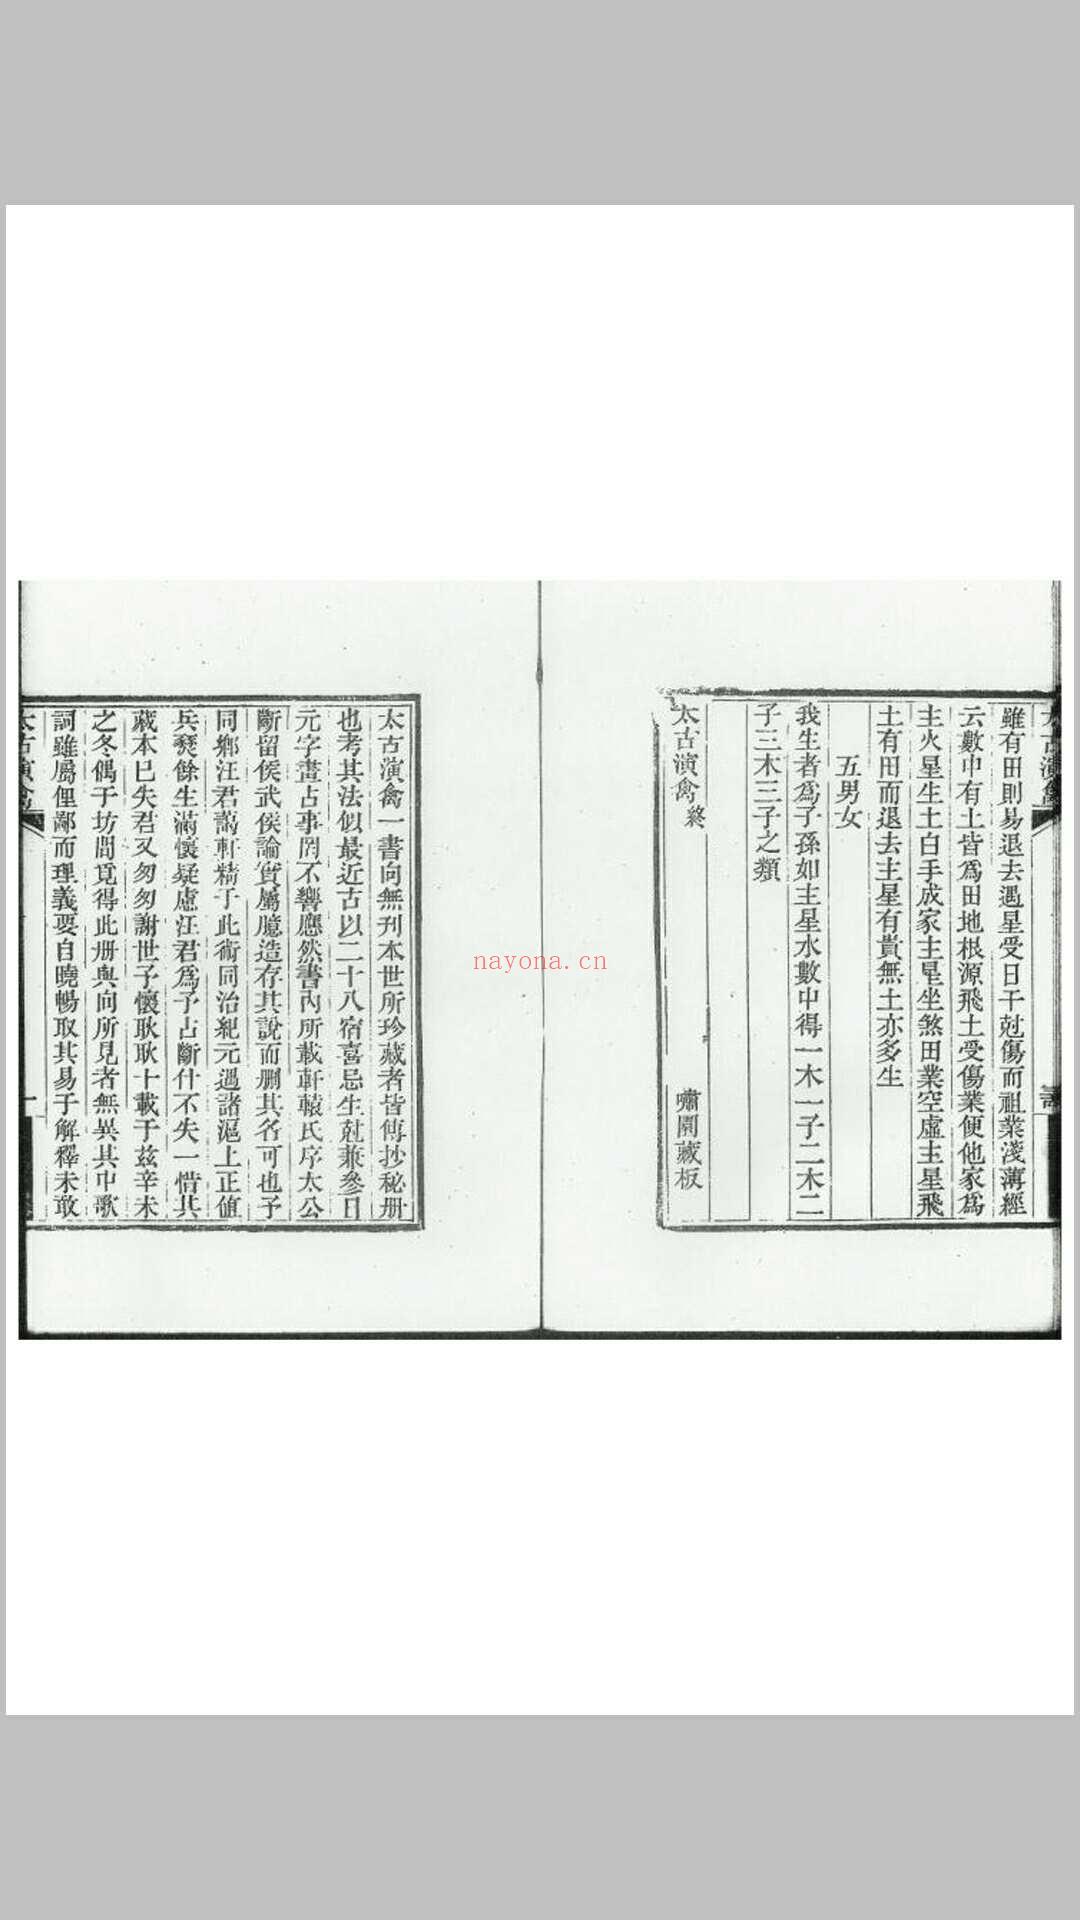 太古演禽
雖有田則易退去遇星受日干尅傷而祖業淺薄經
云數中有土皆爲田地根源飛土受傷業便他家爲
主火星生土白手成家主星坐煞田業空虛主星飛
土有田而退去主星有貴無土亦多生
五男女
我生者爲子孫如主星水數中得一木一子二木二
子三木三子之類
太古演禽終
嘯園藏板
太古演禽一書向無刊本世所珍藏者皆傳抄秘册
也考其法似最近古以二十八宿喜忌生尅兼參日
元字畫占事罔不響應然書內所載軒轅氏序太公
斷留侯武侯論實屬臆造存其說而刪其名可也予
同鄉汪君藹軒精于此術同治紀元遇諸滬上正值
兵燹餘生滿懷疑慮汪君爲予占斷什不失一惜其
藏本已失君又匆匆謝世予懷耿耿十載于兹辛未
之冬偶于坊間覓得此册與向所見者無異其中歌
詞雖屬俚鄙而理義要自曉暢取其易于解釋未敢
太古演禽
一
nayona.cn